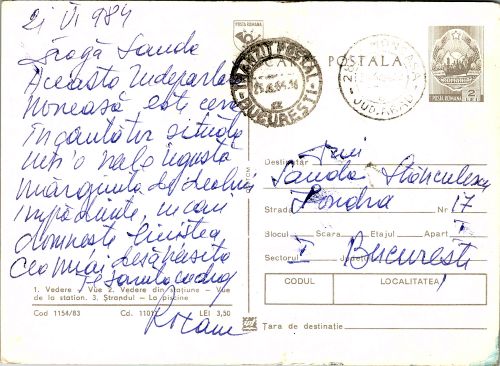 21 VI 984
Dragă Sanda
Această îndepărtată
Moneasă este ceva
încântător situată
într-o vale îngustă
mărginită de dealuri
împădurite, în care
domnește liniștea
cea mai desăvârșită
Te sărută cu drag
Roxana
1. Vedere - Vue 2. Vedere din stațiune - Vue
de la station. 3, Ștrandul - La piscine
Cod 1154/83 Cd. 1101 LEI 3,50
POSTA ROMANA
CARTA POSTALA
TRANZIT POSTAL
BUCUREȘTI
MONEASA
JUD. ARAD
POSTA ROMANA 2 LEI
Destinatar
Sanda Stănculescu
Strada Londra Nr. 17
Blocul Scara Etajul Apart 1
Sectorul I Județul București
CODUL LOCALITATEA
Țara de destinație